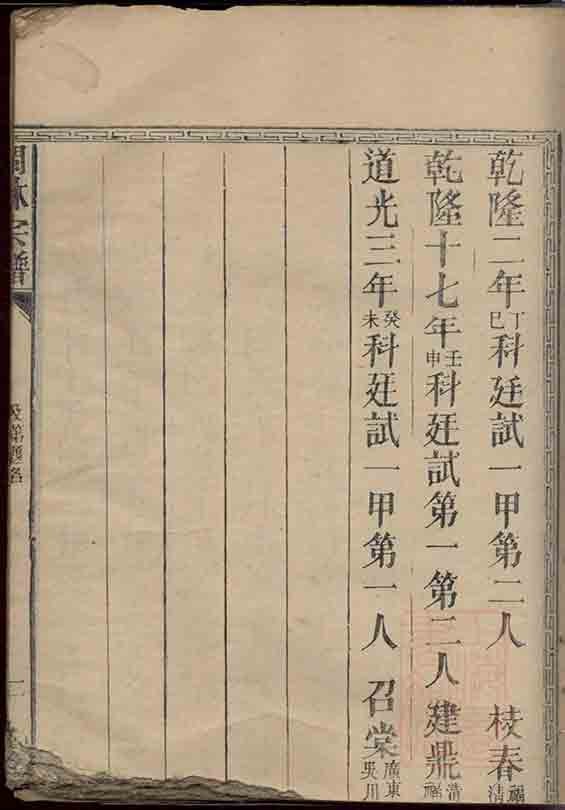 乾隆二年丁巳科廷試一甲第二人　枝春福清
乾隆十七年壬申科廷試第一第二人建鼎清福
道光三年癸未科廷試一甲第一人　召棠廣東吳川
林宗譜